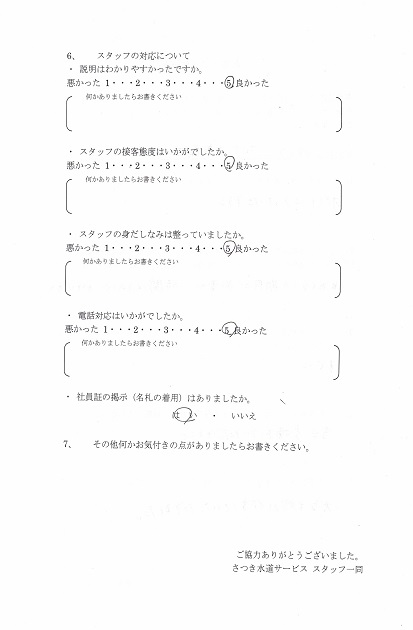 6、 スタッフの対応について
・ 説明はわかりやすかったですか。
悪かった 1・・・2・・・3・・・4・・・5 良かった
何かありましたらお書きください
・ スタッフの接客態度はいかがでしたか。
悪かった 1・・・2・・・3・・・4・・・5 良かった
何かありましたらお書きください
・ スタッフの身だしなみは整っていましたか。
悪かった 1・・・2・・・3・・・4・・・5 良かった
何かありましたらお書きください
・ 電話対応はいかがでしたか。
悪かった 1・・・2・・・3・・・4・・・5 良かった
何かありましたらお書きください
・ 社員証の掲示（名札の着用）はありましたか。
はい ・ いいえ
7、 その他何かお気付きの点がありましたらお書きください。
ご協力ありがとうございました。
さつき水道サービス スタッフ一同